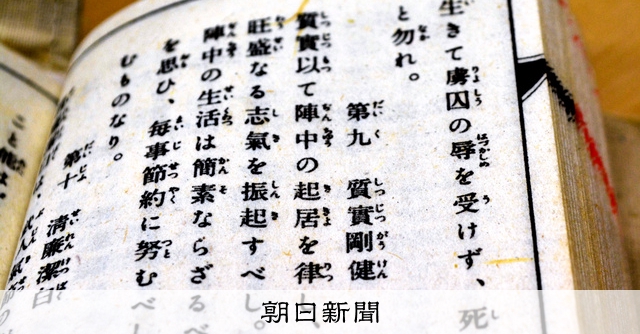 生きて虜囚の辱を受けず、死
と勿れ。
第九　質實剛健
質實以て陣中の起居を律し、
旺盛なる志氣を振起すべし。
陣中の生活は簡素ならざるべ
を思ひ、毎事節約に努むべし
むものなり。
第十　清廉潔白
朝日新聞